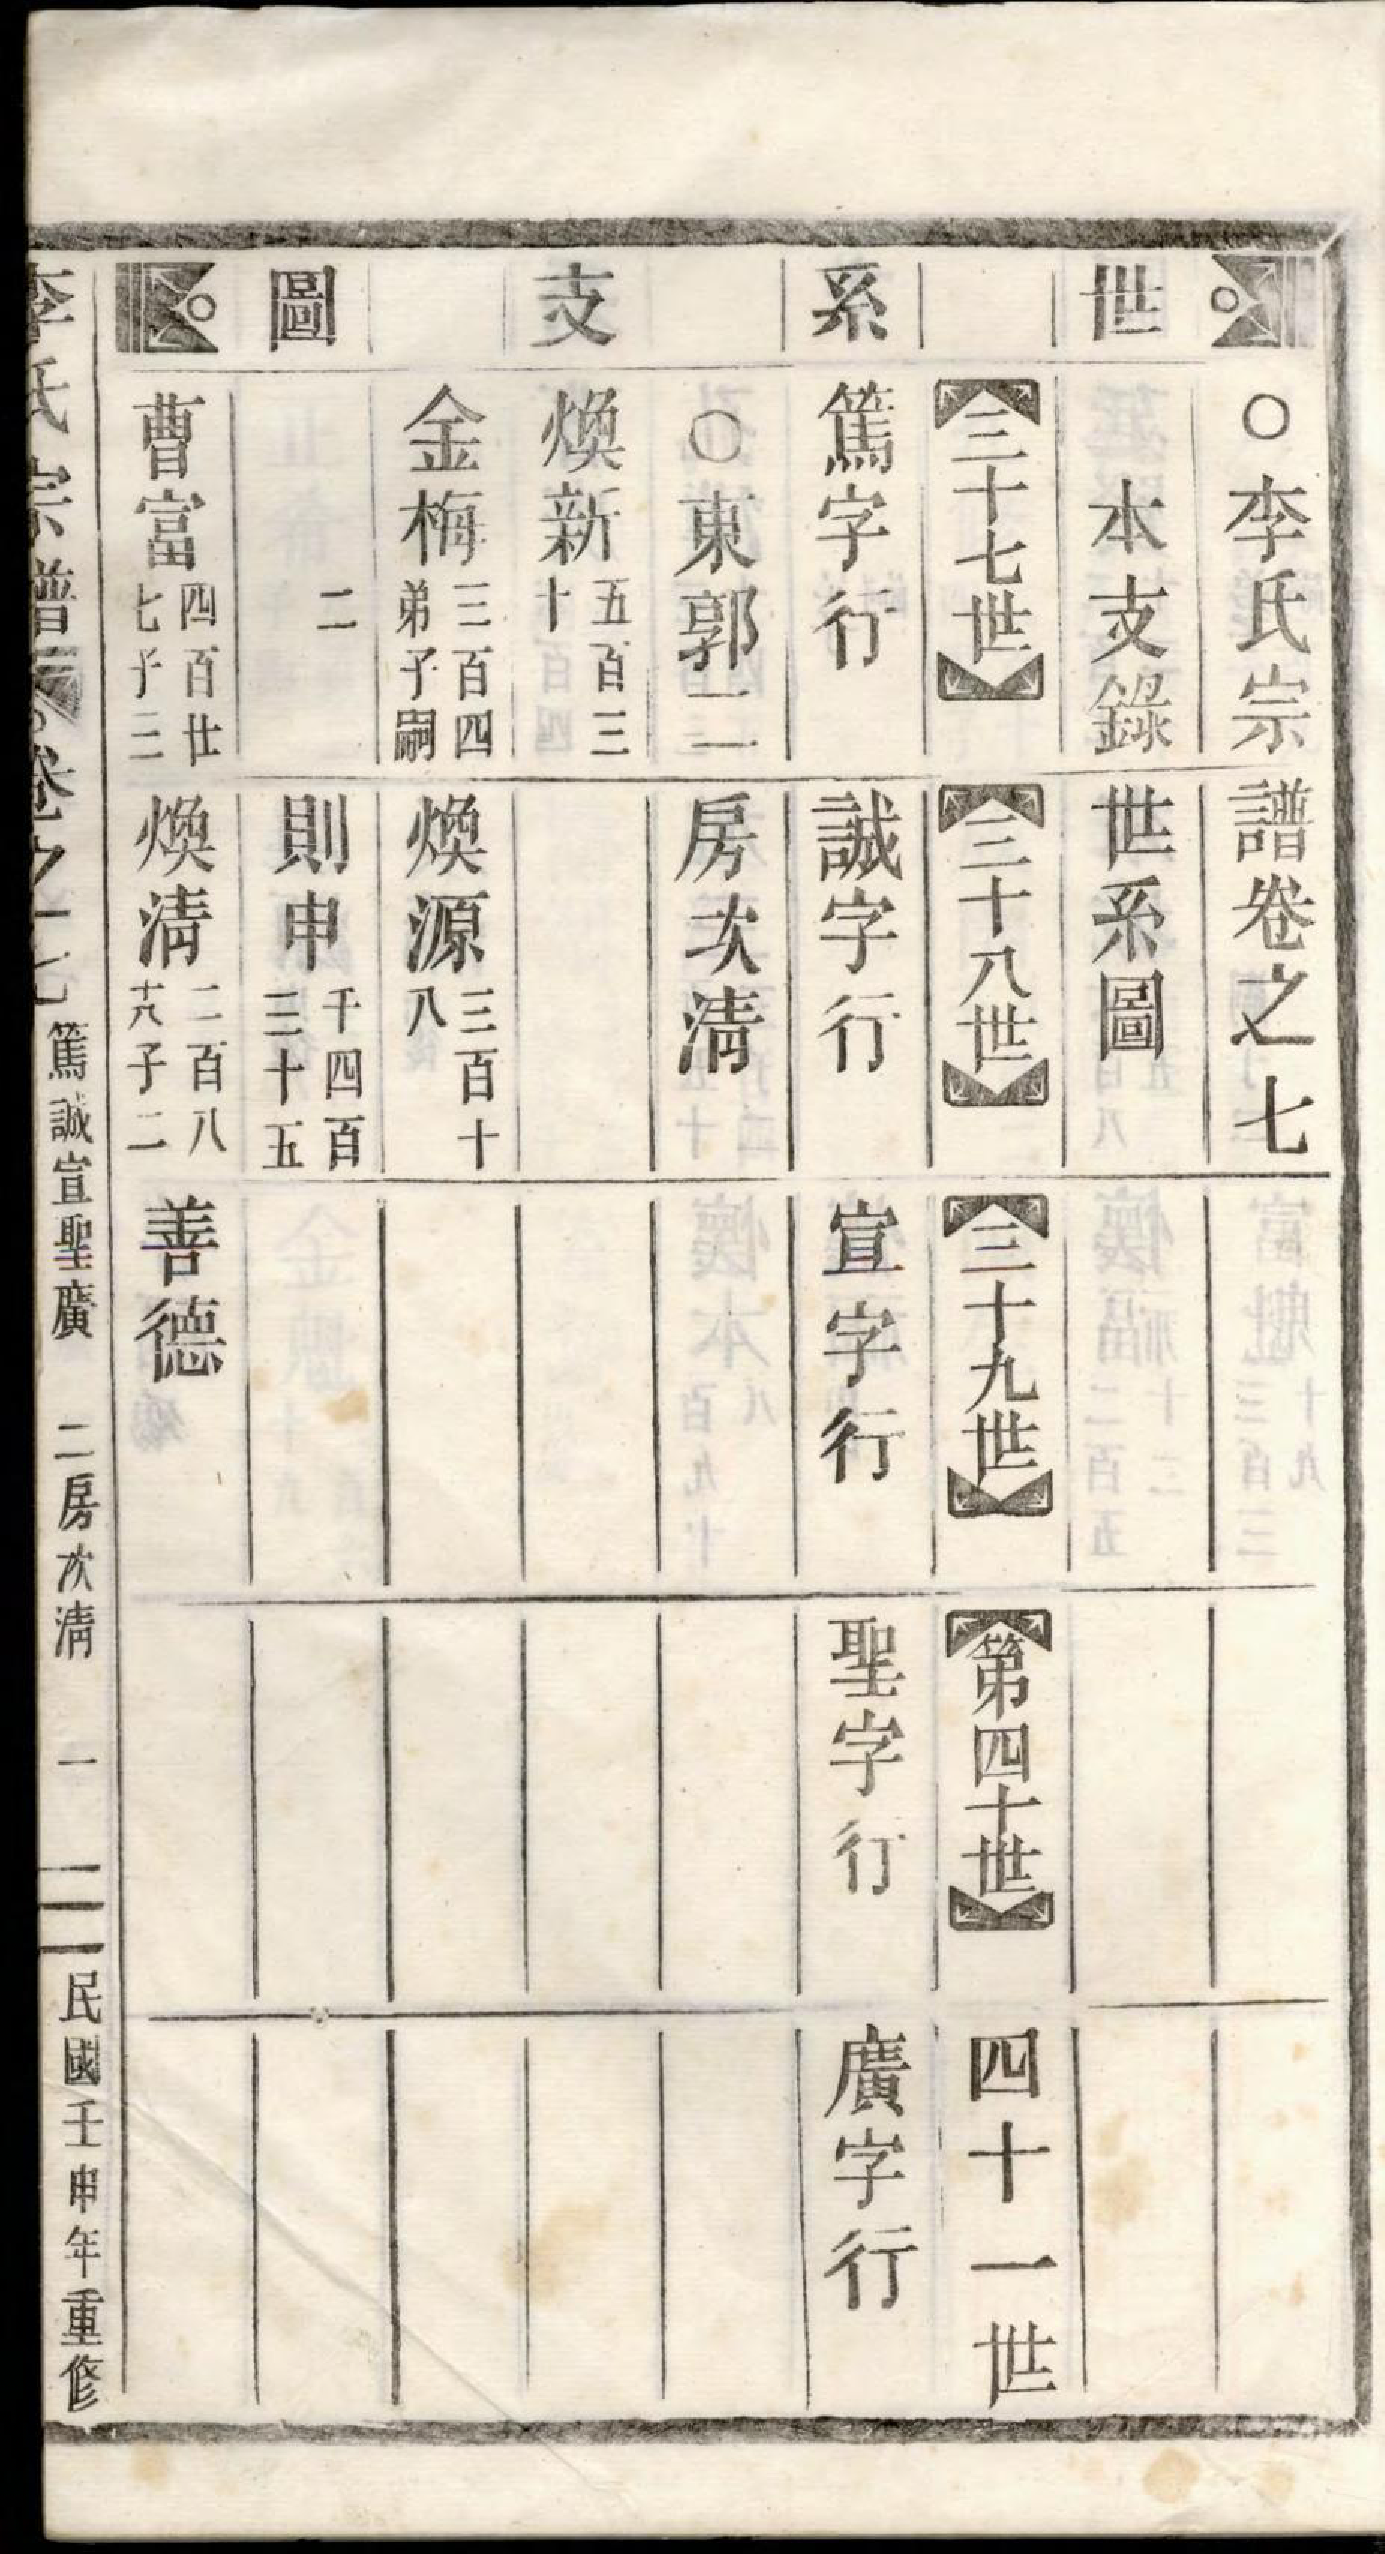 世系支圖
○李氏宗譜卷之七
本支錄世系圖
三十七世
三十八世
三十九世
第四十世
四十一世
篤字行
誠字行
宣字行
聖字行
廣字行
○東郭二二房次淸
煥新
五百三
十
金梅
三百四
弟子嗣
煥源
三百十
八
二
則申
千四百
三十五
曹富
四百廿
七子二
煥淸
二百八
子二
善德
李氏宗譜 卷之七 篤誠宣聖廣 二房次淸 一 民國壬申年重修